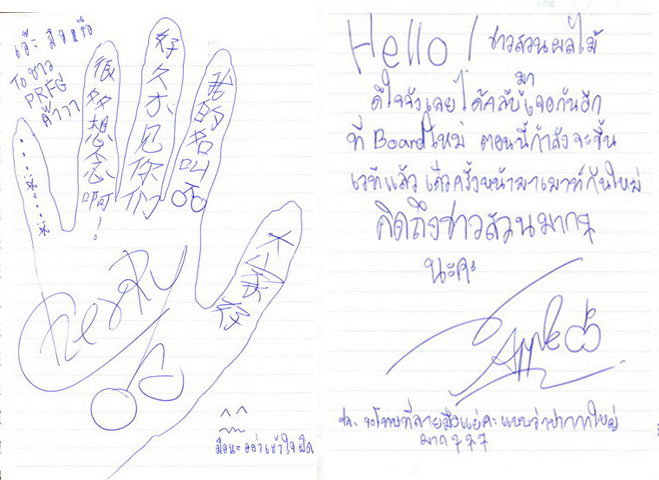 เอ๊ะ มือหรือ
to ชาว
PRFG
ค้าาา
很多想念啊!
好久不见你们
的名叫
大家好
มือนะ อย่าเข้าใจผิด
Hello! ชาวสวนผลไม้
ดีใจจังเลย ได้กลับมาเจอกันอีก
ที่ Board ใหม่ ตอนนี้กำลังจะขึ้น
เวทีแล้ว เดี๋ยวครั้งหน้ามาเมาท์กันใหม่
คิดถึงชาวสวนมากๆ
นะคะ
Apple
ปล. ขอโทษที่ลายมือแย่ค่ะ แบบว่าปากกาใหญ่
มากๆๆๆ